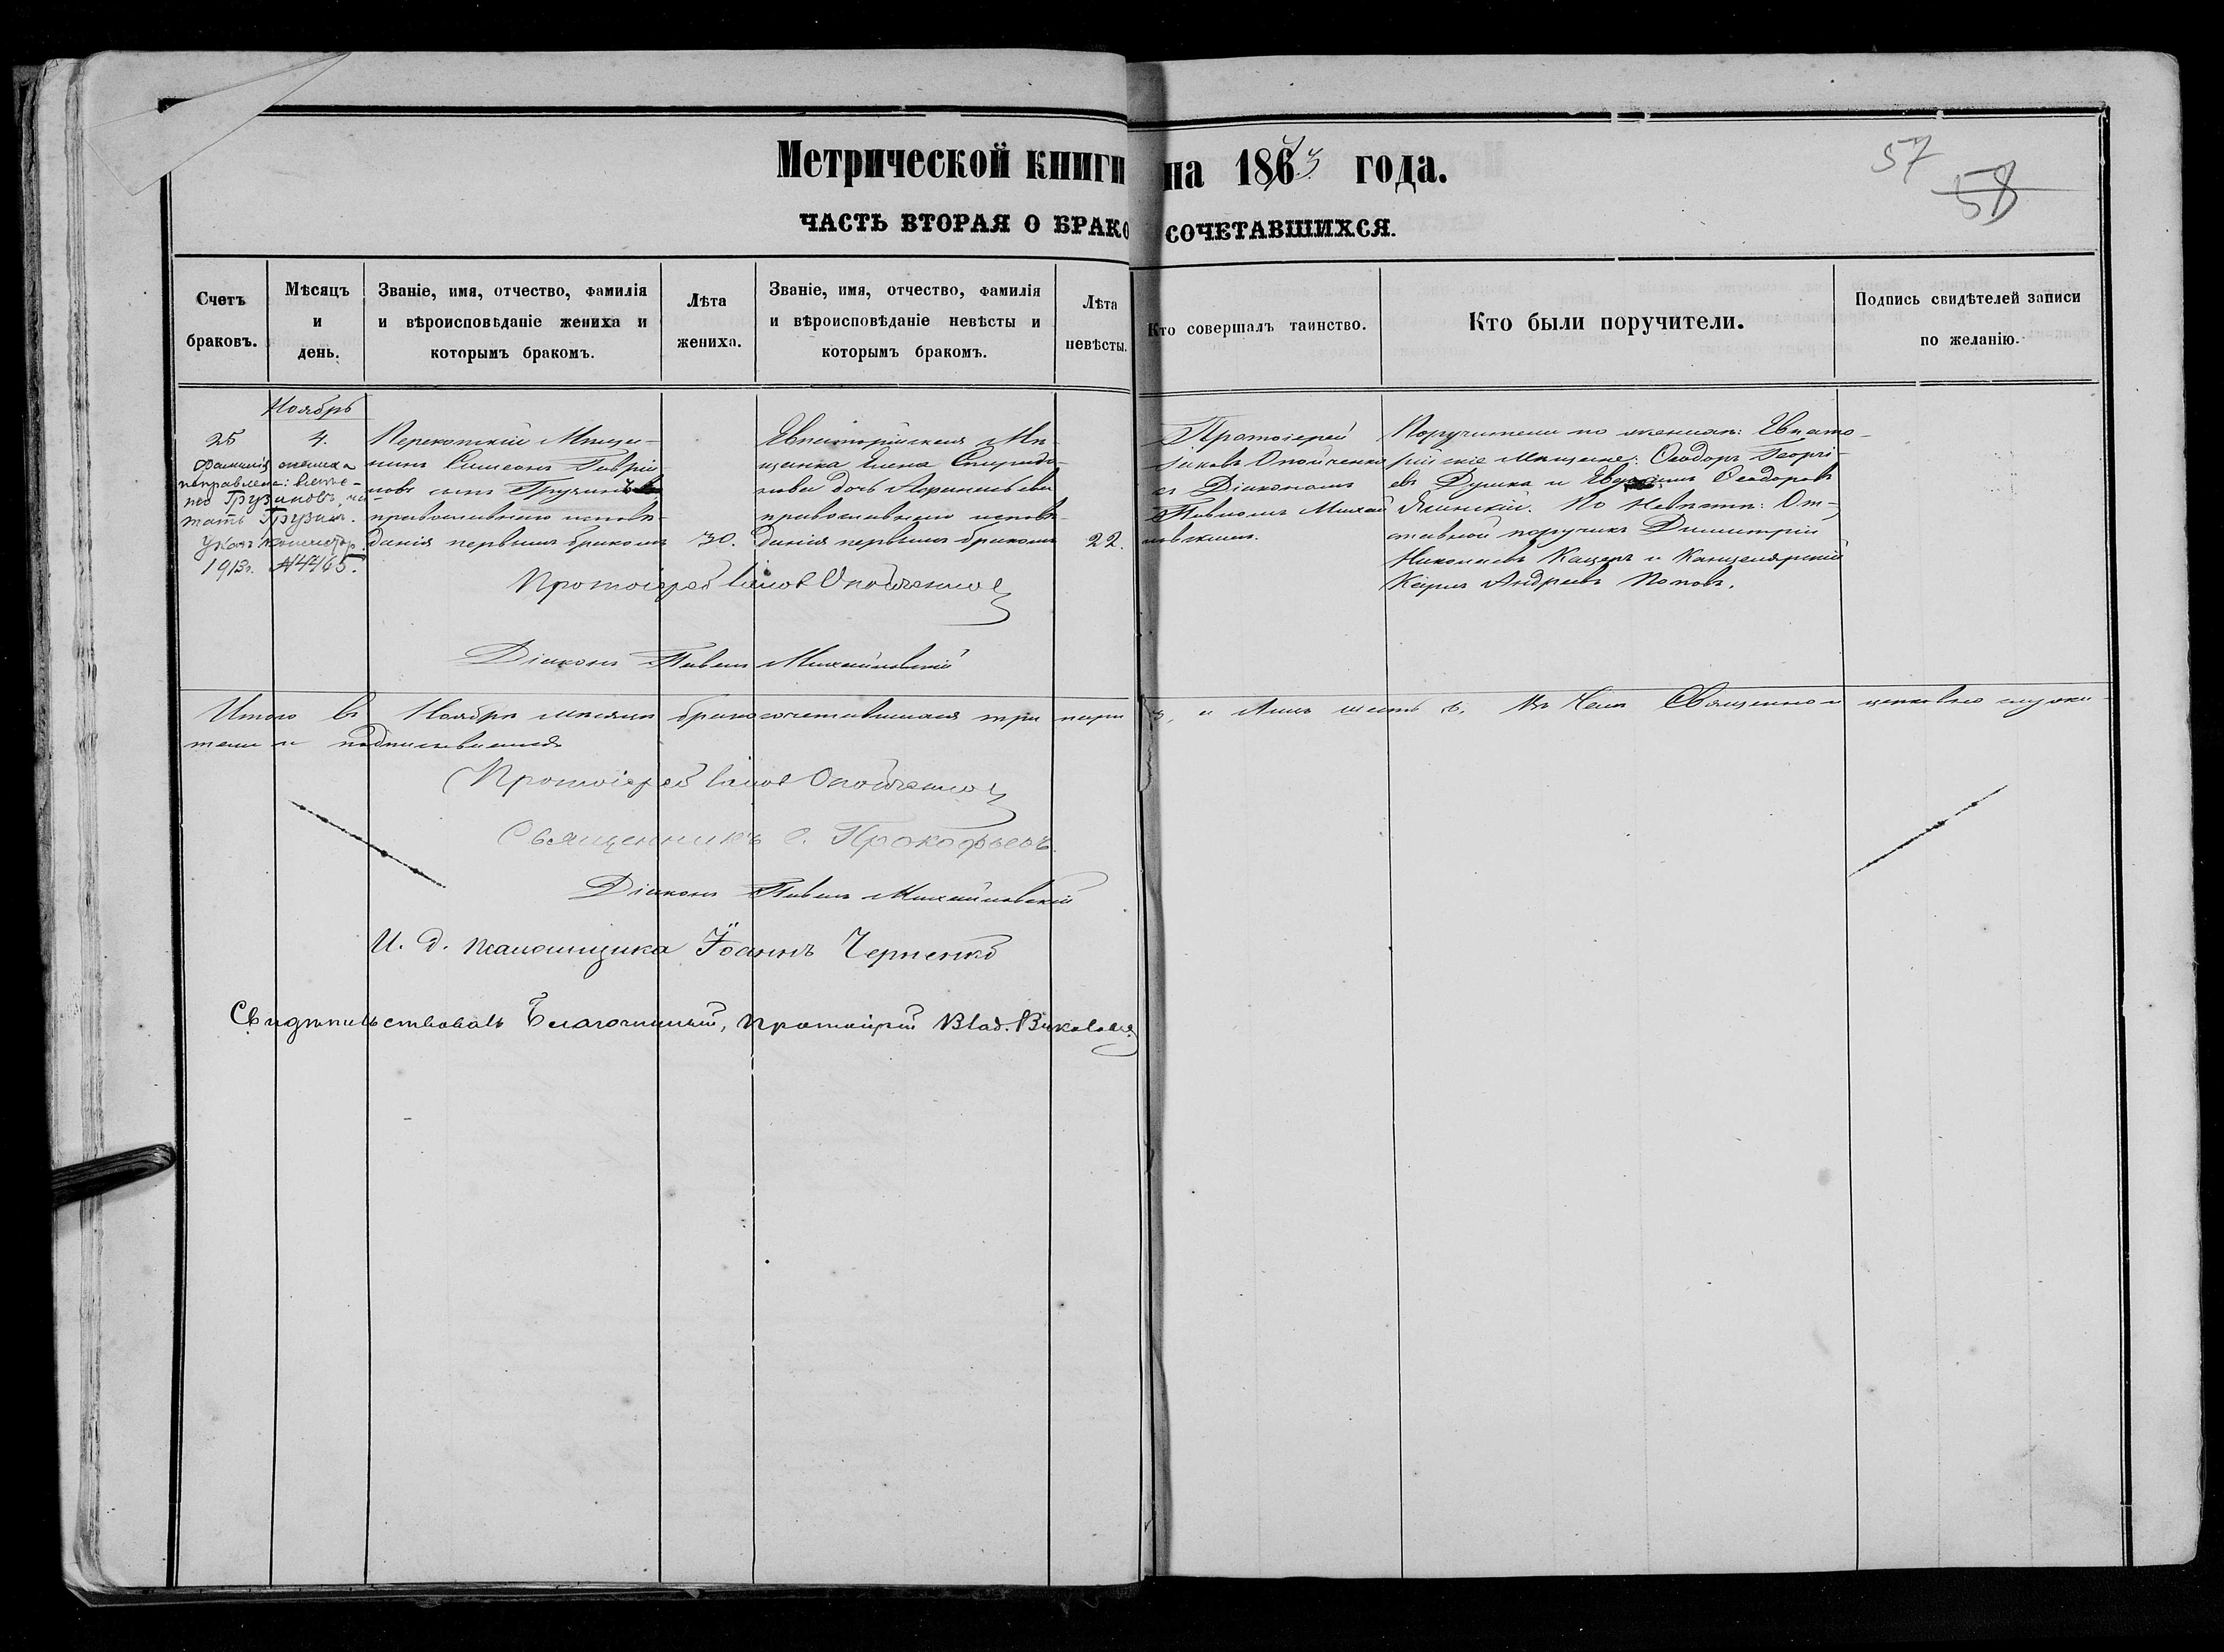 Метрической книги на 1873 года.
57
58
ЧАСТЬ ВТОРАЯ О БРАКОСОЧЕТАВШИХСЯ.
Счетъ браковъ.
Мѣсяцъ и день.
Званіе, имя, отчество, фамилія и вѣроисповѣданіе жениха и которымъ бракомъ.
Лѣта жениха.
Званіе, имя, отчество, фамилія и вѣроисповѣданіе невѣсты и которымъ бракомъ.
Лѣта невѣсты.
Кто совершалъ таинство.
Кто были поручители.
Подпись свидѣтелей записи по желанію.
Ноябрь
25
4.
Фамилія жениха
исправлена: вмѣс-
то Грузиновъ, чи-
тать Грузинъ.
Указъ Консистор.
1913г. №4465.
Перекопскій Мѣща-
нинъ Симеонъ Гаврии-
ловъ сынъ Грузинъ
православнаго исповѣ-
данія первымъ бракомъ
30.
Евпаторійская Мѣ-
щанка Елена Спиридо-
нова дочь
православнаго исповѣ-
данія первымъ бракомъ
22.
Протоіерей
Іаковъ Опойченко
съ Діакономъ
Павломъ Михай
ловскимъ.
Поручители по женихѣ: Евпато-
рійскіе Мѣщане: Ѳеодоръ Георгі-
евъ Душка и Ѳеодоровъ
Ялинскій. По Невѣстѣ: От-
ставной поручикъ Димитрій
Николаевъ Кацеръ и Канцелярскій
Киръ Андреевъ Поповъ.
Протоіерей Іаковъ Опойченко
Діаконъ Павелъ Михайловскій
Итого въ Ноябрѣ мѣсяцѣ бракосочетавшихся три пары 3, и лицъ шесть 6. Въ чемъ Священно и церковно служи-
тели и подписываемся
Протоіерей Іаковъ Опойченко
Священникъ С. Прокофьевъ.
Діаконъ Павелъ Михайловскій
И. д. псаломщика Іоаннъ Черненко
Свидѣтельствовалъ Благочинный, протоіерей Влад.